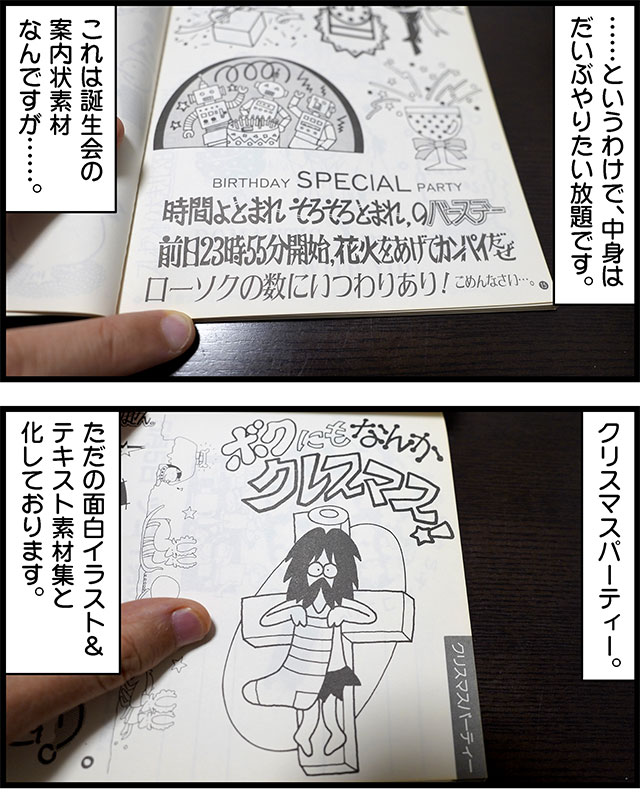 ……というわけで、中身は
だいぶやりたい放題です。
BIRTHDAY SPECIAL PARTY
時間よとまれ そろそろとまれ,のバースデー
前日23時55分開始,花火をあげてカンパイだぜ
ローソクの数にいつわりあり! ごめんなさい…。 15
これは誕生会の
案内状素材
なんですが……。
クリスマスパーティー。
ボクにもなんか
クレスマス!
クリスマスパーティー
ただの面白イラスト&
テキスト素材集と
化しております。